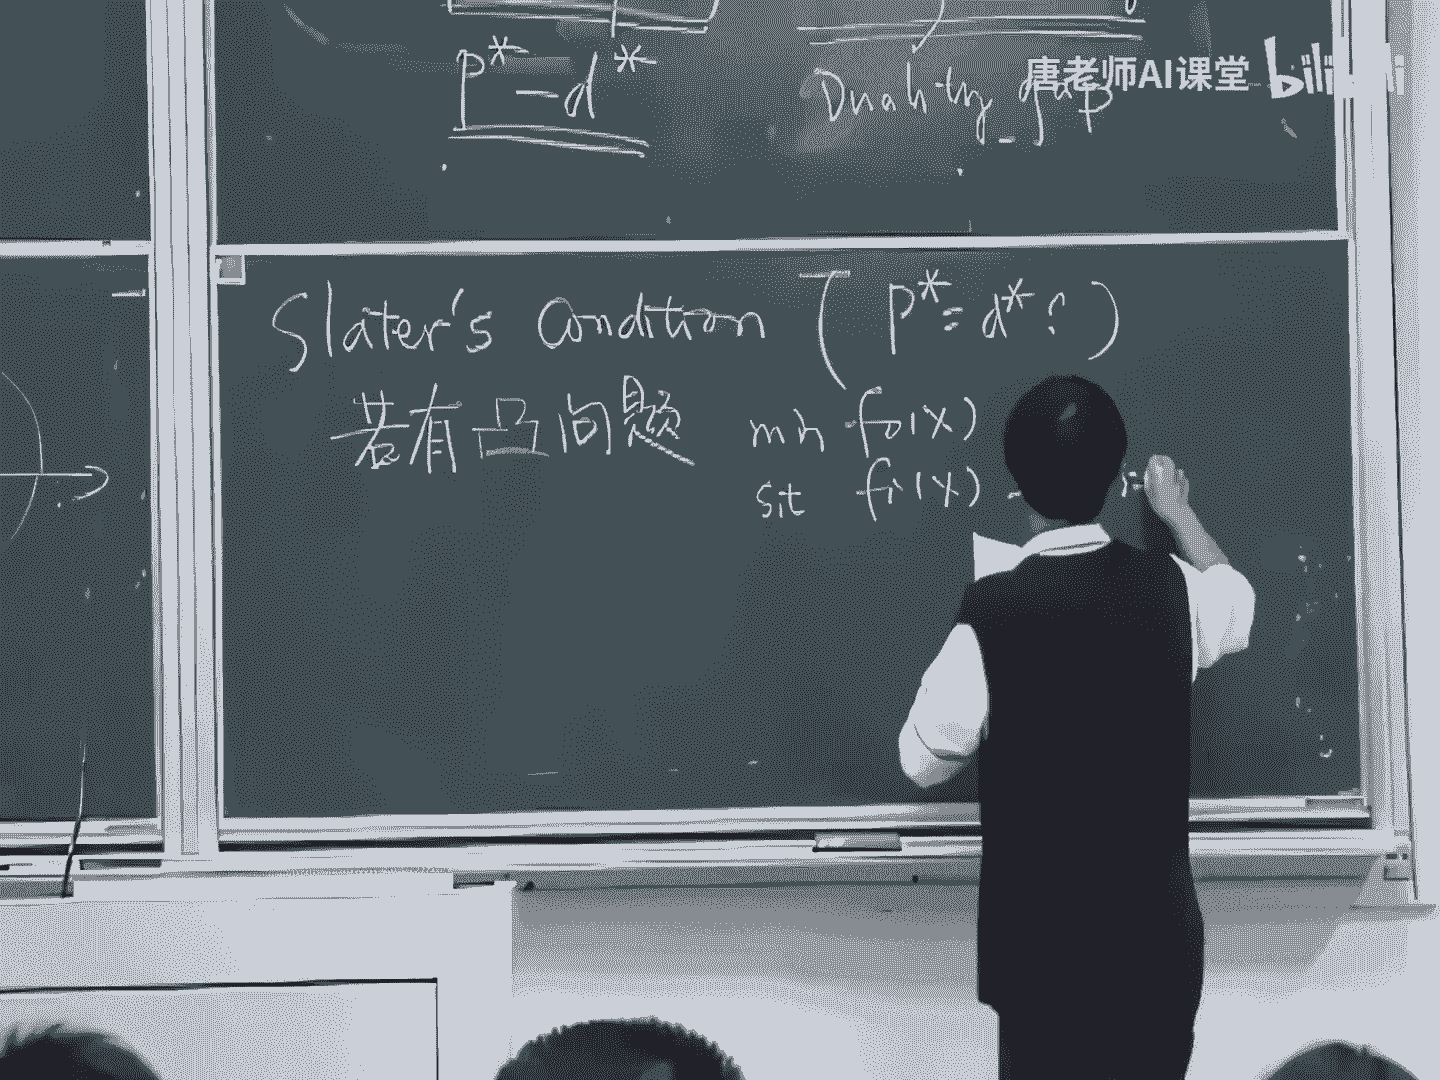 P* - d*
Duality gap
唐老师AI课堂 bilibili
Slater's Condition ( P* = d* ? )
若有凸问题 min f₀(x)
s.t fᵢ(x)